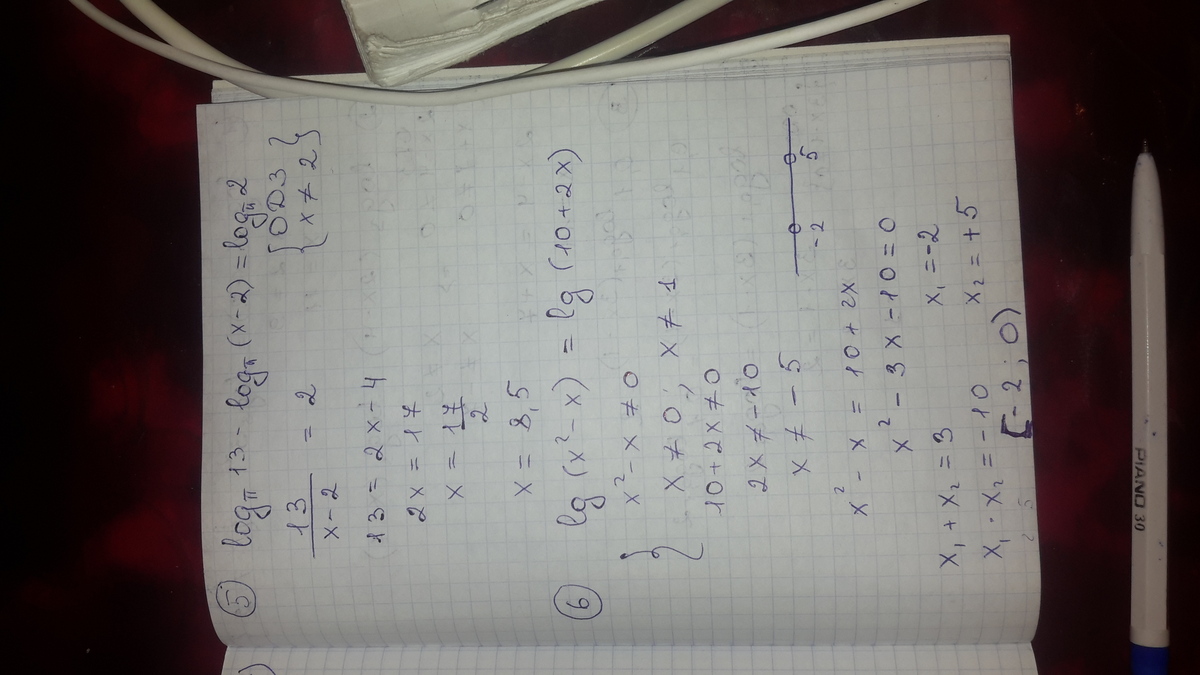 ⑤ log_π 13 - log_π (x-2) = log_π 2
13/(x-2) = 2
{ОДЗ
{x ≠ 2}
13 = 2x - 4
2x = 17
x = 17/2
x = 8,5
⑥ lg (x² - x) = lg (10 + 2x)
{ x² - x ≠ 0
x ≠ 0; x ≠ 1
10 + 2x ≠ 0
2x ≠ -10
x ≠ -5
-2 5
x² - x = 10 + 2x
x² - 3x - 10 = 0
x₁ + x₂ = 3 x₁ = -2
x₁ · x₂ = -10 x₂ = +5
[-2; 0)
PIANO 30